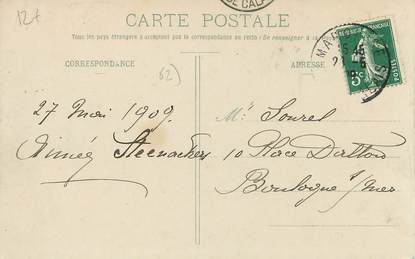 12+
DE CALA
CARTE POSTALE
Tous les pays étrangers n'acceptent pas la correspondance au recto (Se renseigner à la
CORRESPONDANCE
ADRESSE
62)
5 c
POSTES
27 Mai 1909
Aimée Steenackers
Mr Souret
10 Place Dalton
Boulogne s/mer